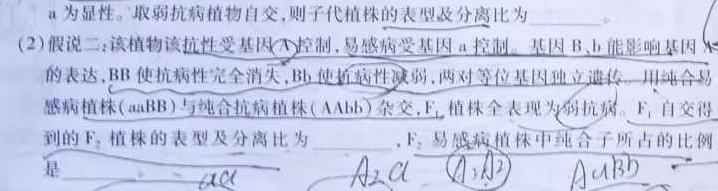 a 为显性。取弱抗病植物自交,则子代植株的表型及分离比为________。
(2)假说二:该植物该抗性受基因A控制,易感病受基因a控制。基因B、b能影响基因A
的表达,BB使抗病性完全消失,Bb使抗病性减弱,两对等位基因独立遗传。用纯合易
感病植株(aaBB)与纯合抗病植株(AAbb)杂交,F₁植株全表现为弱抗病。F₁自交得
到的F₂植株的表型及分离比为________,F₂易感病植株中纯合子所占的比例
是________。
aa A₂a AaBb